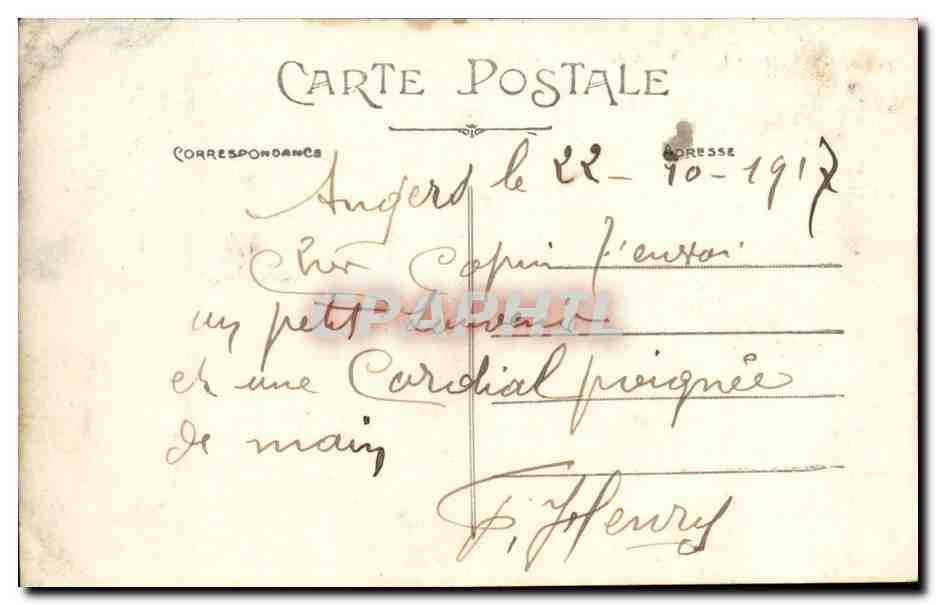 CARTE POSTALE
CORRESPONDANCE
ADRESSE
Angers le 22-10-1917
Cher Copin j'envoi
un petit Souvenir
et une Cordial poignée
de main
P. Henry
CPAPHIL